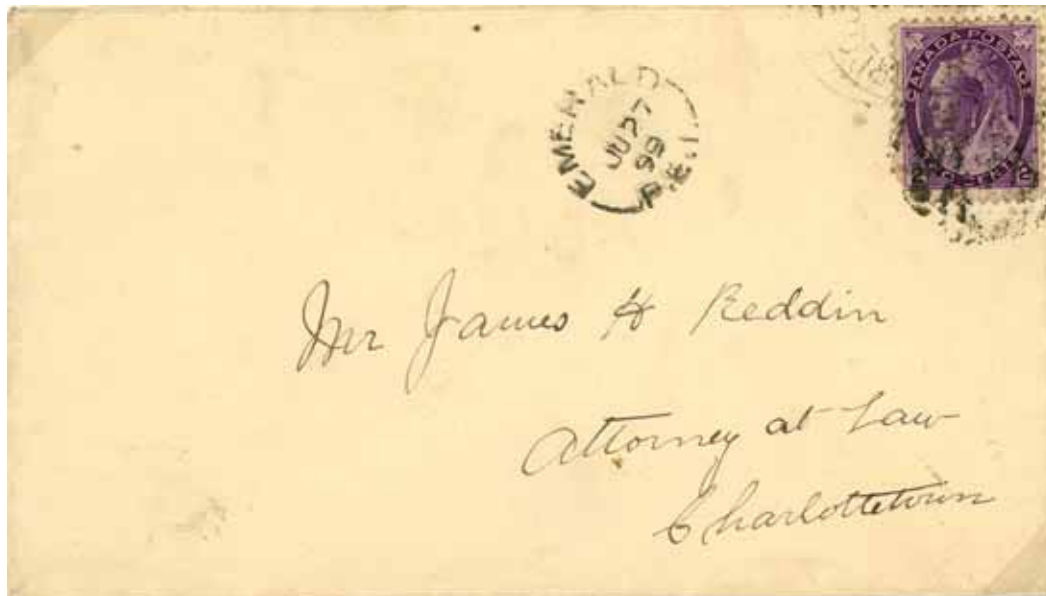 CANADA POSTAGE
2 2
EMERALD
JU 27
99
P.E.I
Mr James H Reddin
Attorney at Law
Charlottetown